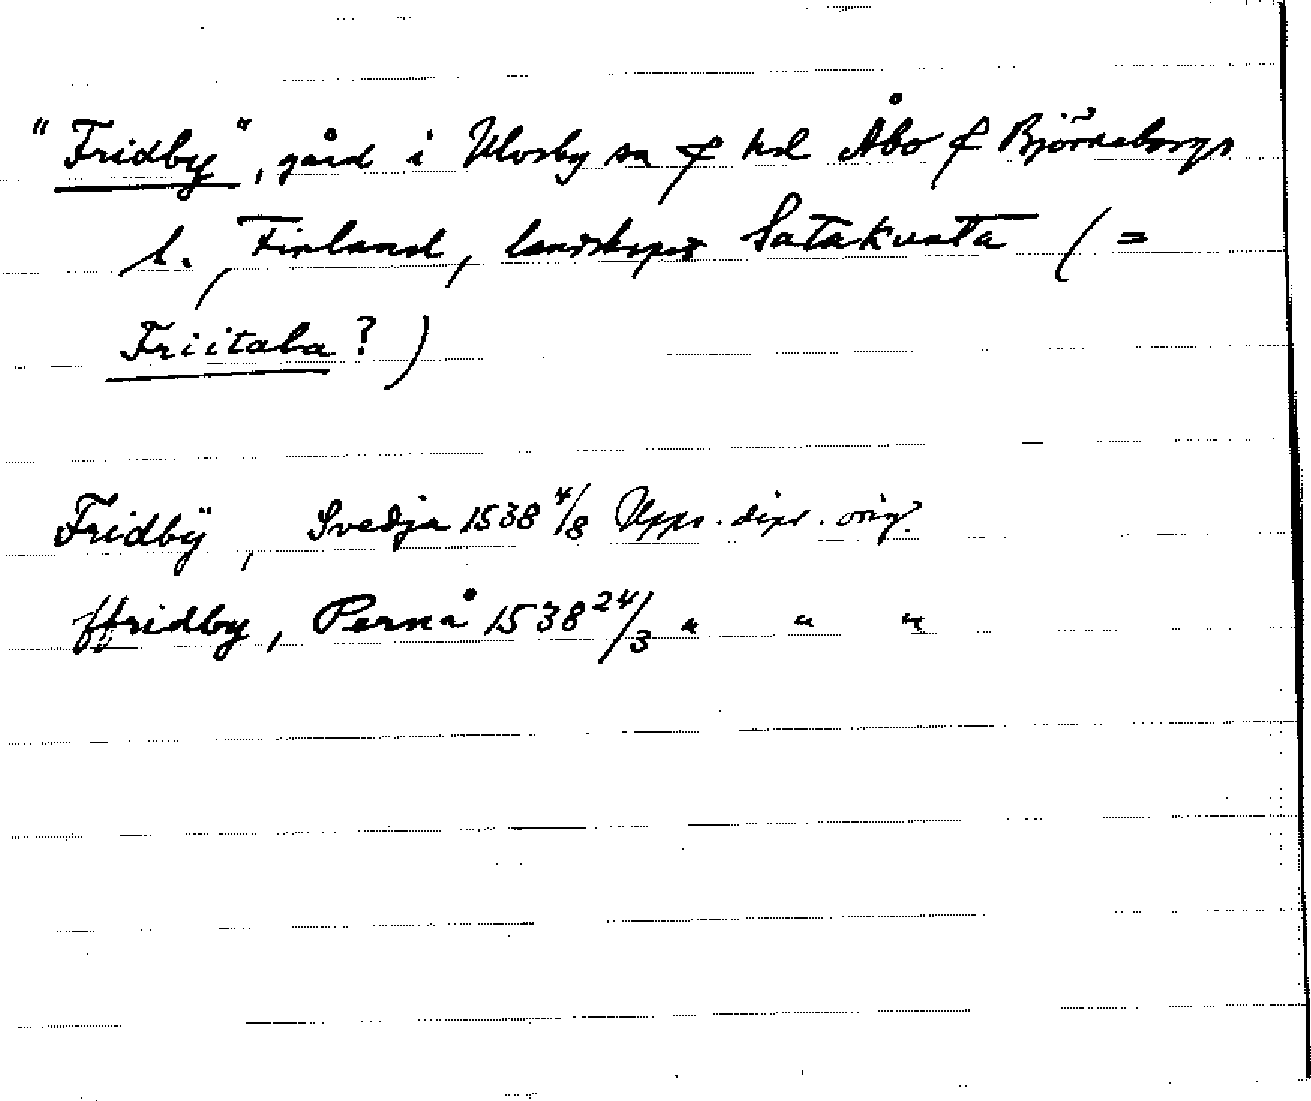 "Fridby", gård i Ulvsby sn o hd Åbo o Björneborgs
l., Finland, landskapet Satakunta (=
Friitala?)
Fridbÿ, Svedja 1538 4/8 Upps. dipl. orig.
ffridby, Pernå 1538 24/3 " " "